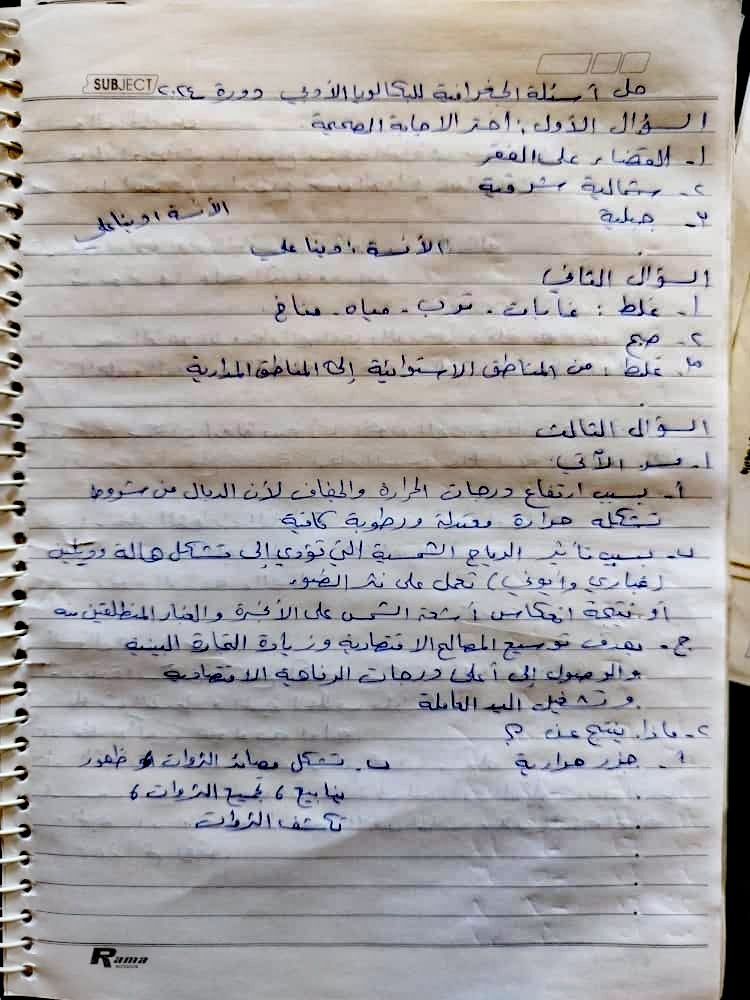 SUBJECT
حل أسئلة الجغرافية للبكالوريا الأدبي دورة ٢٠٢٤
السؤال الأول: اختر الاجابة الصحيحة
١- القضاء على الفقر
٢- شمالية شرقية
٣- جبلية
الآنسة اوينا علي
الآنسة: اوينا علي
السؤال الثاني
١- غلط: غابات - ترب - مياه - مناخ
٢- صح
٣- غلط: من المناطق الاستوائية إلى المناطق المدارية
السؤال الثالث
١- فسر الآتي:
أ- بسبب ارتفاع درجات الحرارة والجفاف لأن الدبال من شروط
تشكله حرارة معتدلة ورطوبة كافية
ب- بسبب تأثير الرياح الشمسية التي تؤدي إلى تشكل هالة وذيلين
(غباري وأيوني) تعمل على نثر الضوء
أو نتيجة انعكاس أشعة الشمس على الأبخرة والغبار المنطلقين منه
ج- بهدف توسيع المصالح الاقتصادية وزيادة التجارة البينية
والوصول إلى أعلى درجات الرفاهية الاقتصادية
وتشغيل اليد العاملة
٢- ماذا ينتج عن ؟
أ- جزر حرارية
ب- تشكل مصائد الثروات وظهور
ينابيع، تجميع الثروات،
تكشف الثروات
Rama